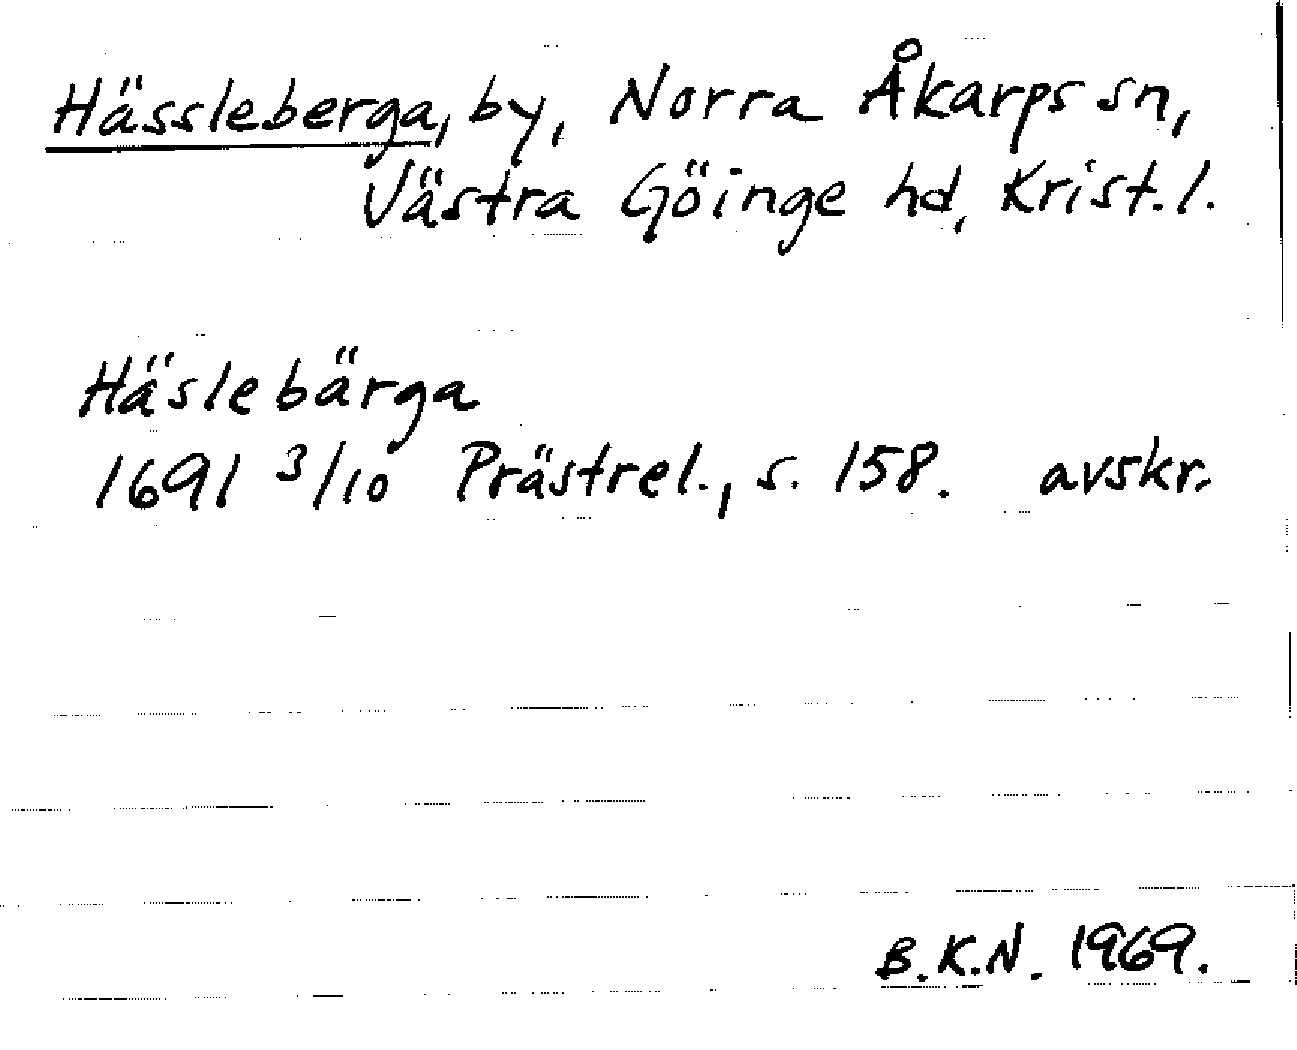 Hässleberga, by, Norra Åkarps sn,
Västra Göinge hd, Krist. l.
Häslebärga
1691 3/10 Prästrel., s. 158. avskr.
B.K.N. 1969.